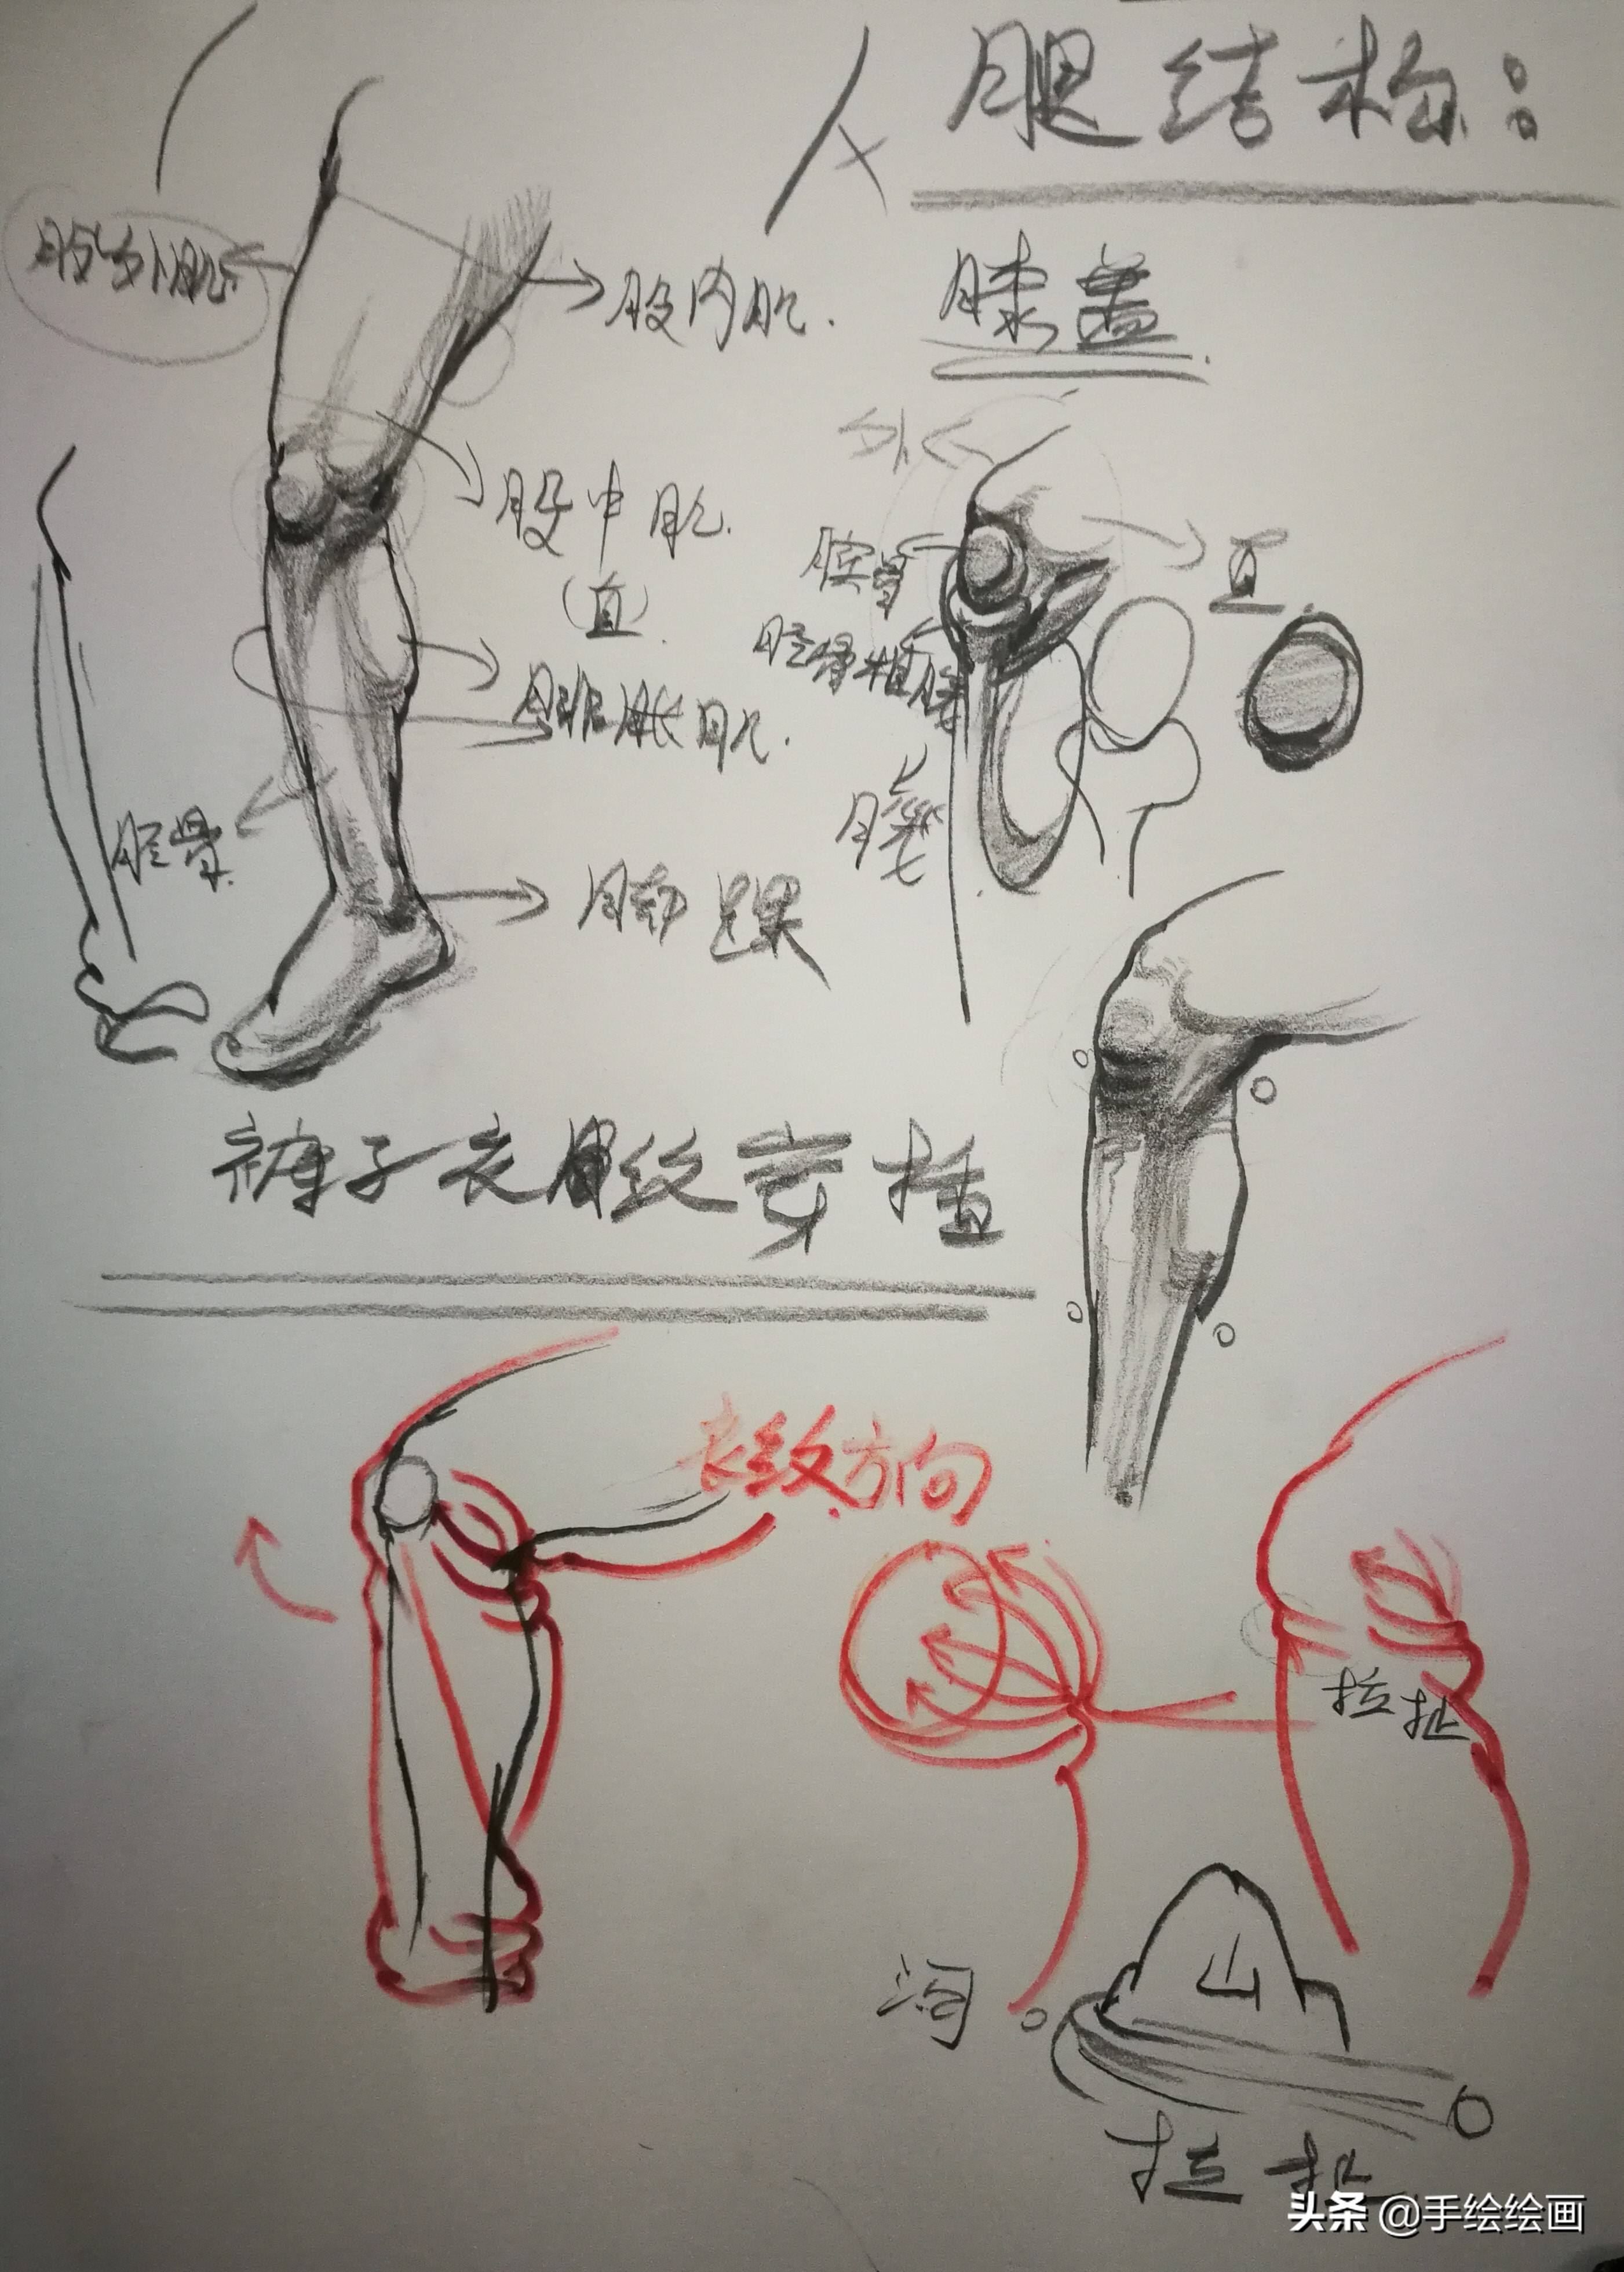 腿结构:
膝盖
股外肌
股内肌.
外
股中肌.
(直).
直.
髌骨
胫骨粗隆
腓肠肌.
胫骨.
脚踝
裤子衣服纹穿插
衣纹方向
拉扯
山
沟
拉扯
头条 @手绘绘画